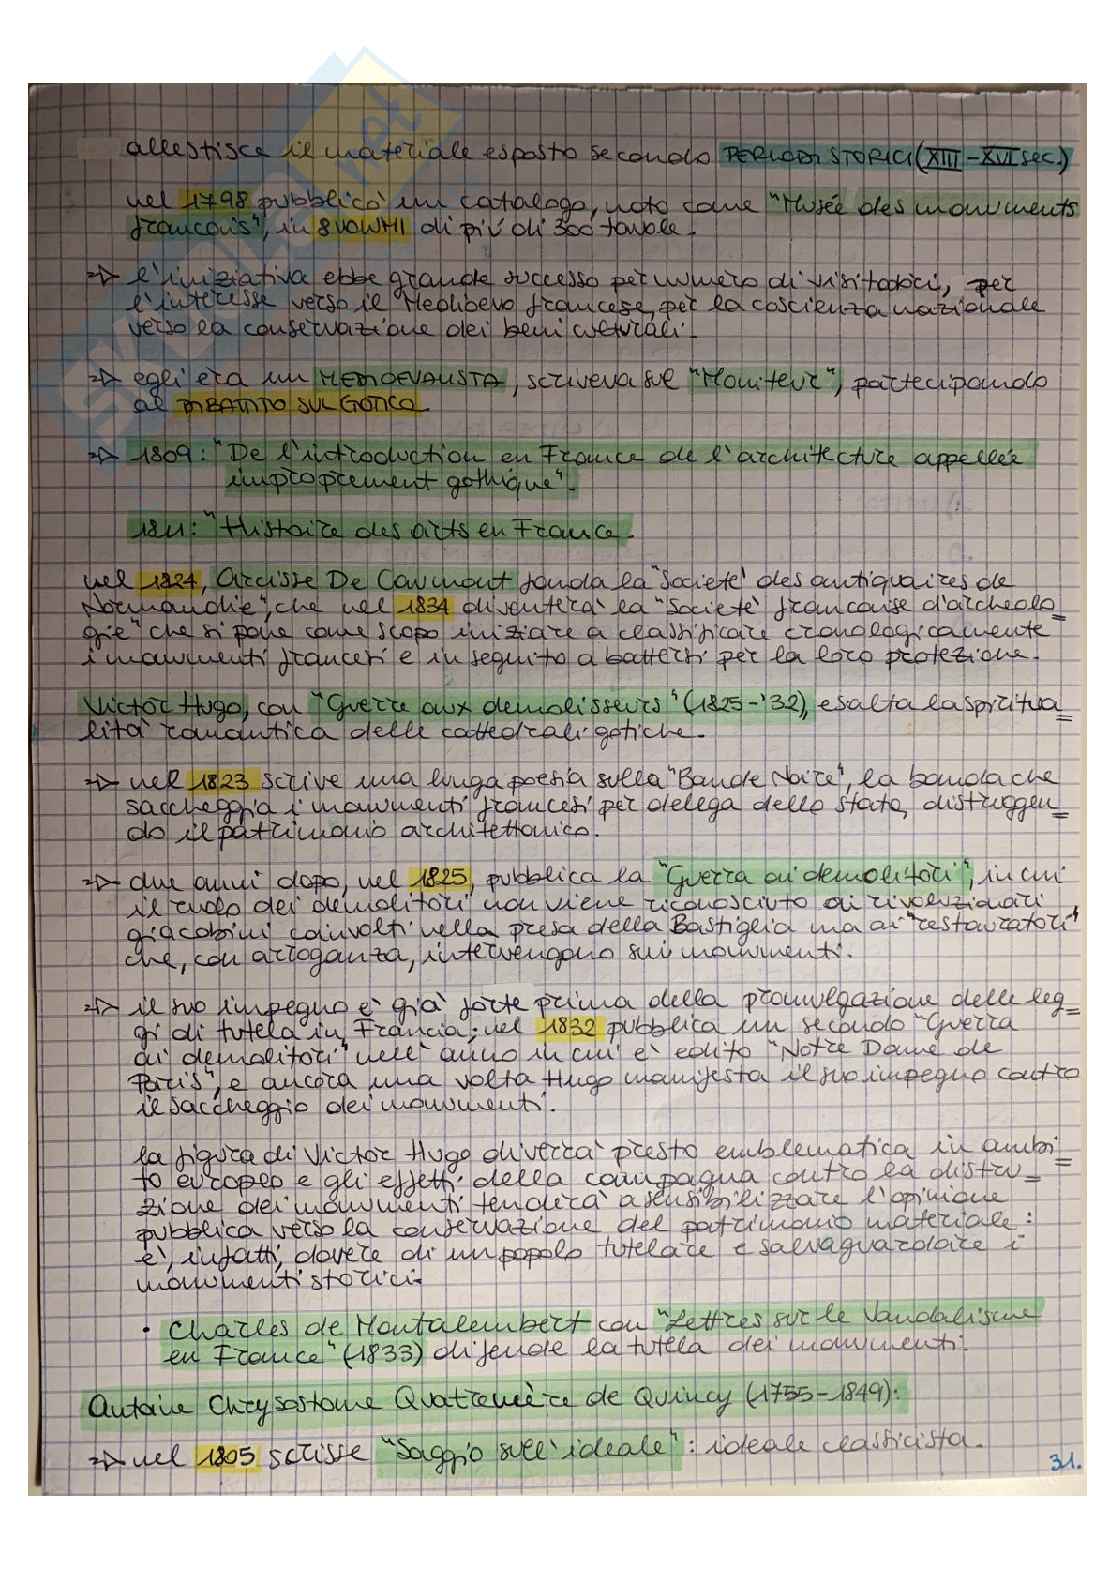 allestisce il materiale esposto secondo PERIODI STORICI (XIII-XVI sec.)
nel 1798 pubblicò un catalogo, noto come "Musée des monuments
français", in 8 VOLUMI di più di 300 tavole.
=> l'iniziativa ebbe grande successo per numero di visitatori, per
l'interesse verso il Medioevo francese, per la coscienza nazionale
verso la conservazione dei beni culturali.
=> egli era un MEDIOEVALISTA, scriveva sul "Moniteur", partecipando
al DIBATTITO SUL GOTICO.
=> 1809: "De l'introduction en France de l'architecture appellée
improprement gothique".
1811: "Histoire des arts en France.
nel 1824, Arcisse De Caumont fonda la "Societé des antiquaires de
Normandie", che nel 1834 diventerà la "Societé francaise d'archeolo=
gie" che si pone come scopo iniziare a classificare cronologicamente
i monumenti francesi e in seguito a battersi per la loro protezione.
Victor Hugo, con "Guerre aux demolisseurs" (1825-'32), esalta la spiritua=
lità romantica delle cattedrali gotiche.
=> nel 1823 scrive una lunga poesia sulla "Bande Noire", la banda che
saccheggia i monumenti francesi per delega dello Stato, distruggen=
do il patrimonio architettonico.
=> due anni dopo, nel 1825, pubblica la "Guerra ai demolitori", in cui
il ruolo dei demolitori non viene riconosciuto ai rivoluzionari
giacobini coinvolti nella presa della Bastiglia ma ai "restauratori"
che, con arroganza, intervengono sui monumenti.
=> il suo impegno è già forte prima della promulgazione delle leg=
gi di tutela in Francia; nel 1832 pubblica un secondo "Guerra
ai demolitori" nell'anno in cui è edito "Notre Dame de
Paris", e ancora una volta Hugo manifesta il suo impegno contro
il saccheggio dei monumenti.
la figura di Victor Hugo diverrà presto emblematica in ambi=
to europeo e gli effetti della campagna contro la distru=
zione dei monumenti tenderà a sensibilizzare l'opinione
pubblica verso la conservazione del patrimonio materiale:
è, infatti, dovere di un popolo tutelare e salvaguardare i
monumenti storici.
• Charles de Montalembert con "Lettres sur le Vandalisme
en France" (1833) difende la tutela dei monumenti.
Antoine Chrysostome Quatremère de Quincy (1755-1849):
=> nel 1805 scrisse "Saggio sull'ideale": ideale classicista.
31.